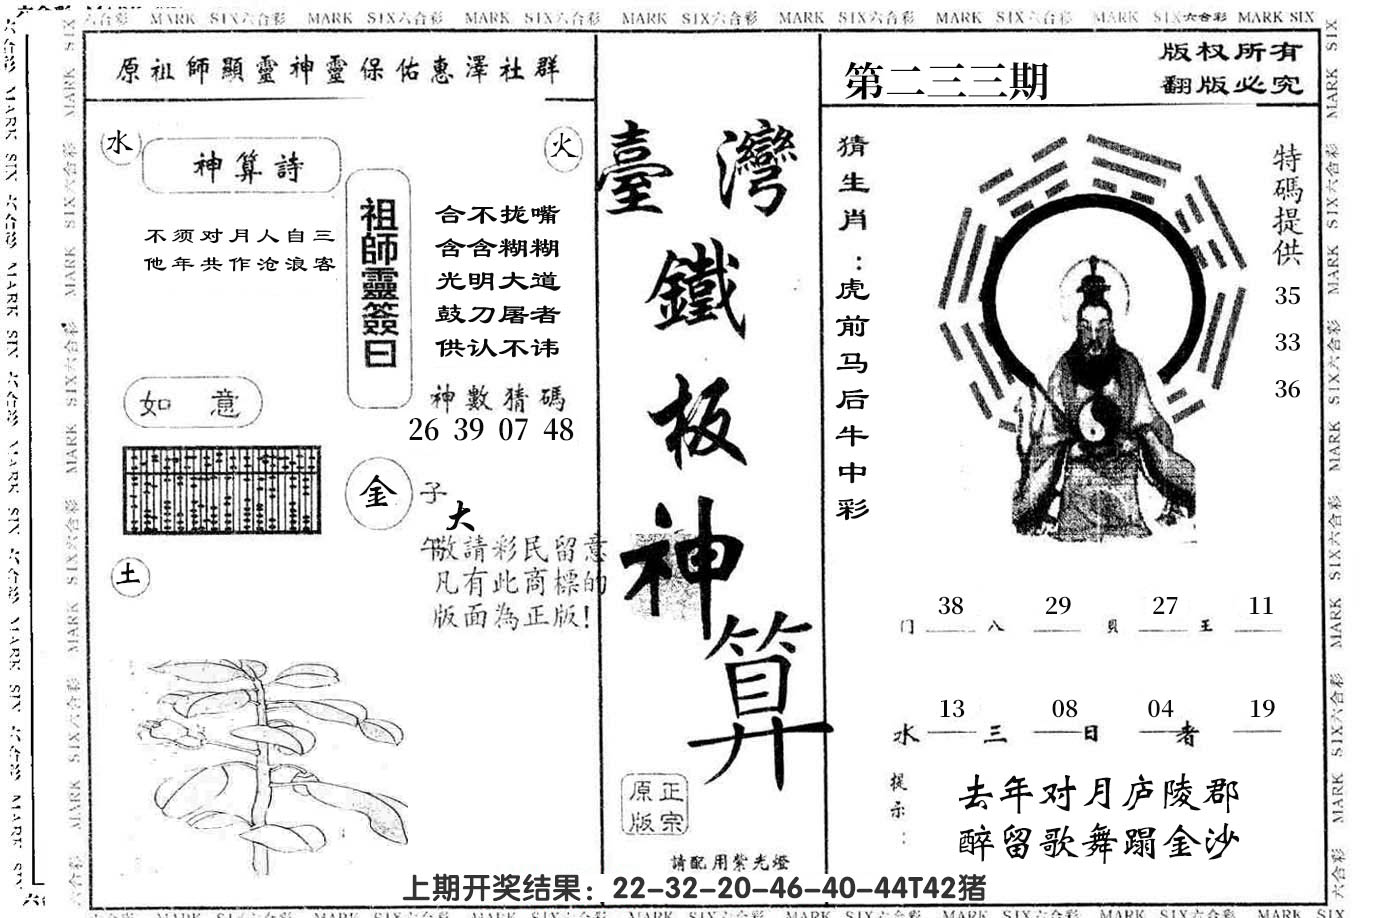 六合彩 MARK SIX六合彩 MARK SIX六合彩 MARK SIX六合彩 MARK SIX六合彩 MARK SIX六合彩 MARK SIX六合彩 MARK SIX六合彩 MARK SIX
原祖師顯靈神靈保佑惠澤社群
水
神算詩
火
不须对月人自三
他年共作沧浪客
祖師靈簽曰
合不拢嘴
含含糊糊
光明大道
鼓刀屠者
供认不讳
神數猜碼
26 39 07 48
如意
金
子
大
午
敬請彩民留意
凡有此商標的
版面為正版!
土
臺灣
鐵
板
神
算
原正
版宗
請配用紫光燈
第二三三期
版权所有
翻版必究
猜生肖:虎前马后牛中彩
特碼提供
35
33
36
38 29 27 11
门 八 貝 王
13 08 04 19
水 三 日 者
提示:
去年对月庐陵郡
醉留歌舞蹋金沙
上期开奖结果：22-32-20-46-40-44T42猪